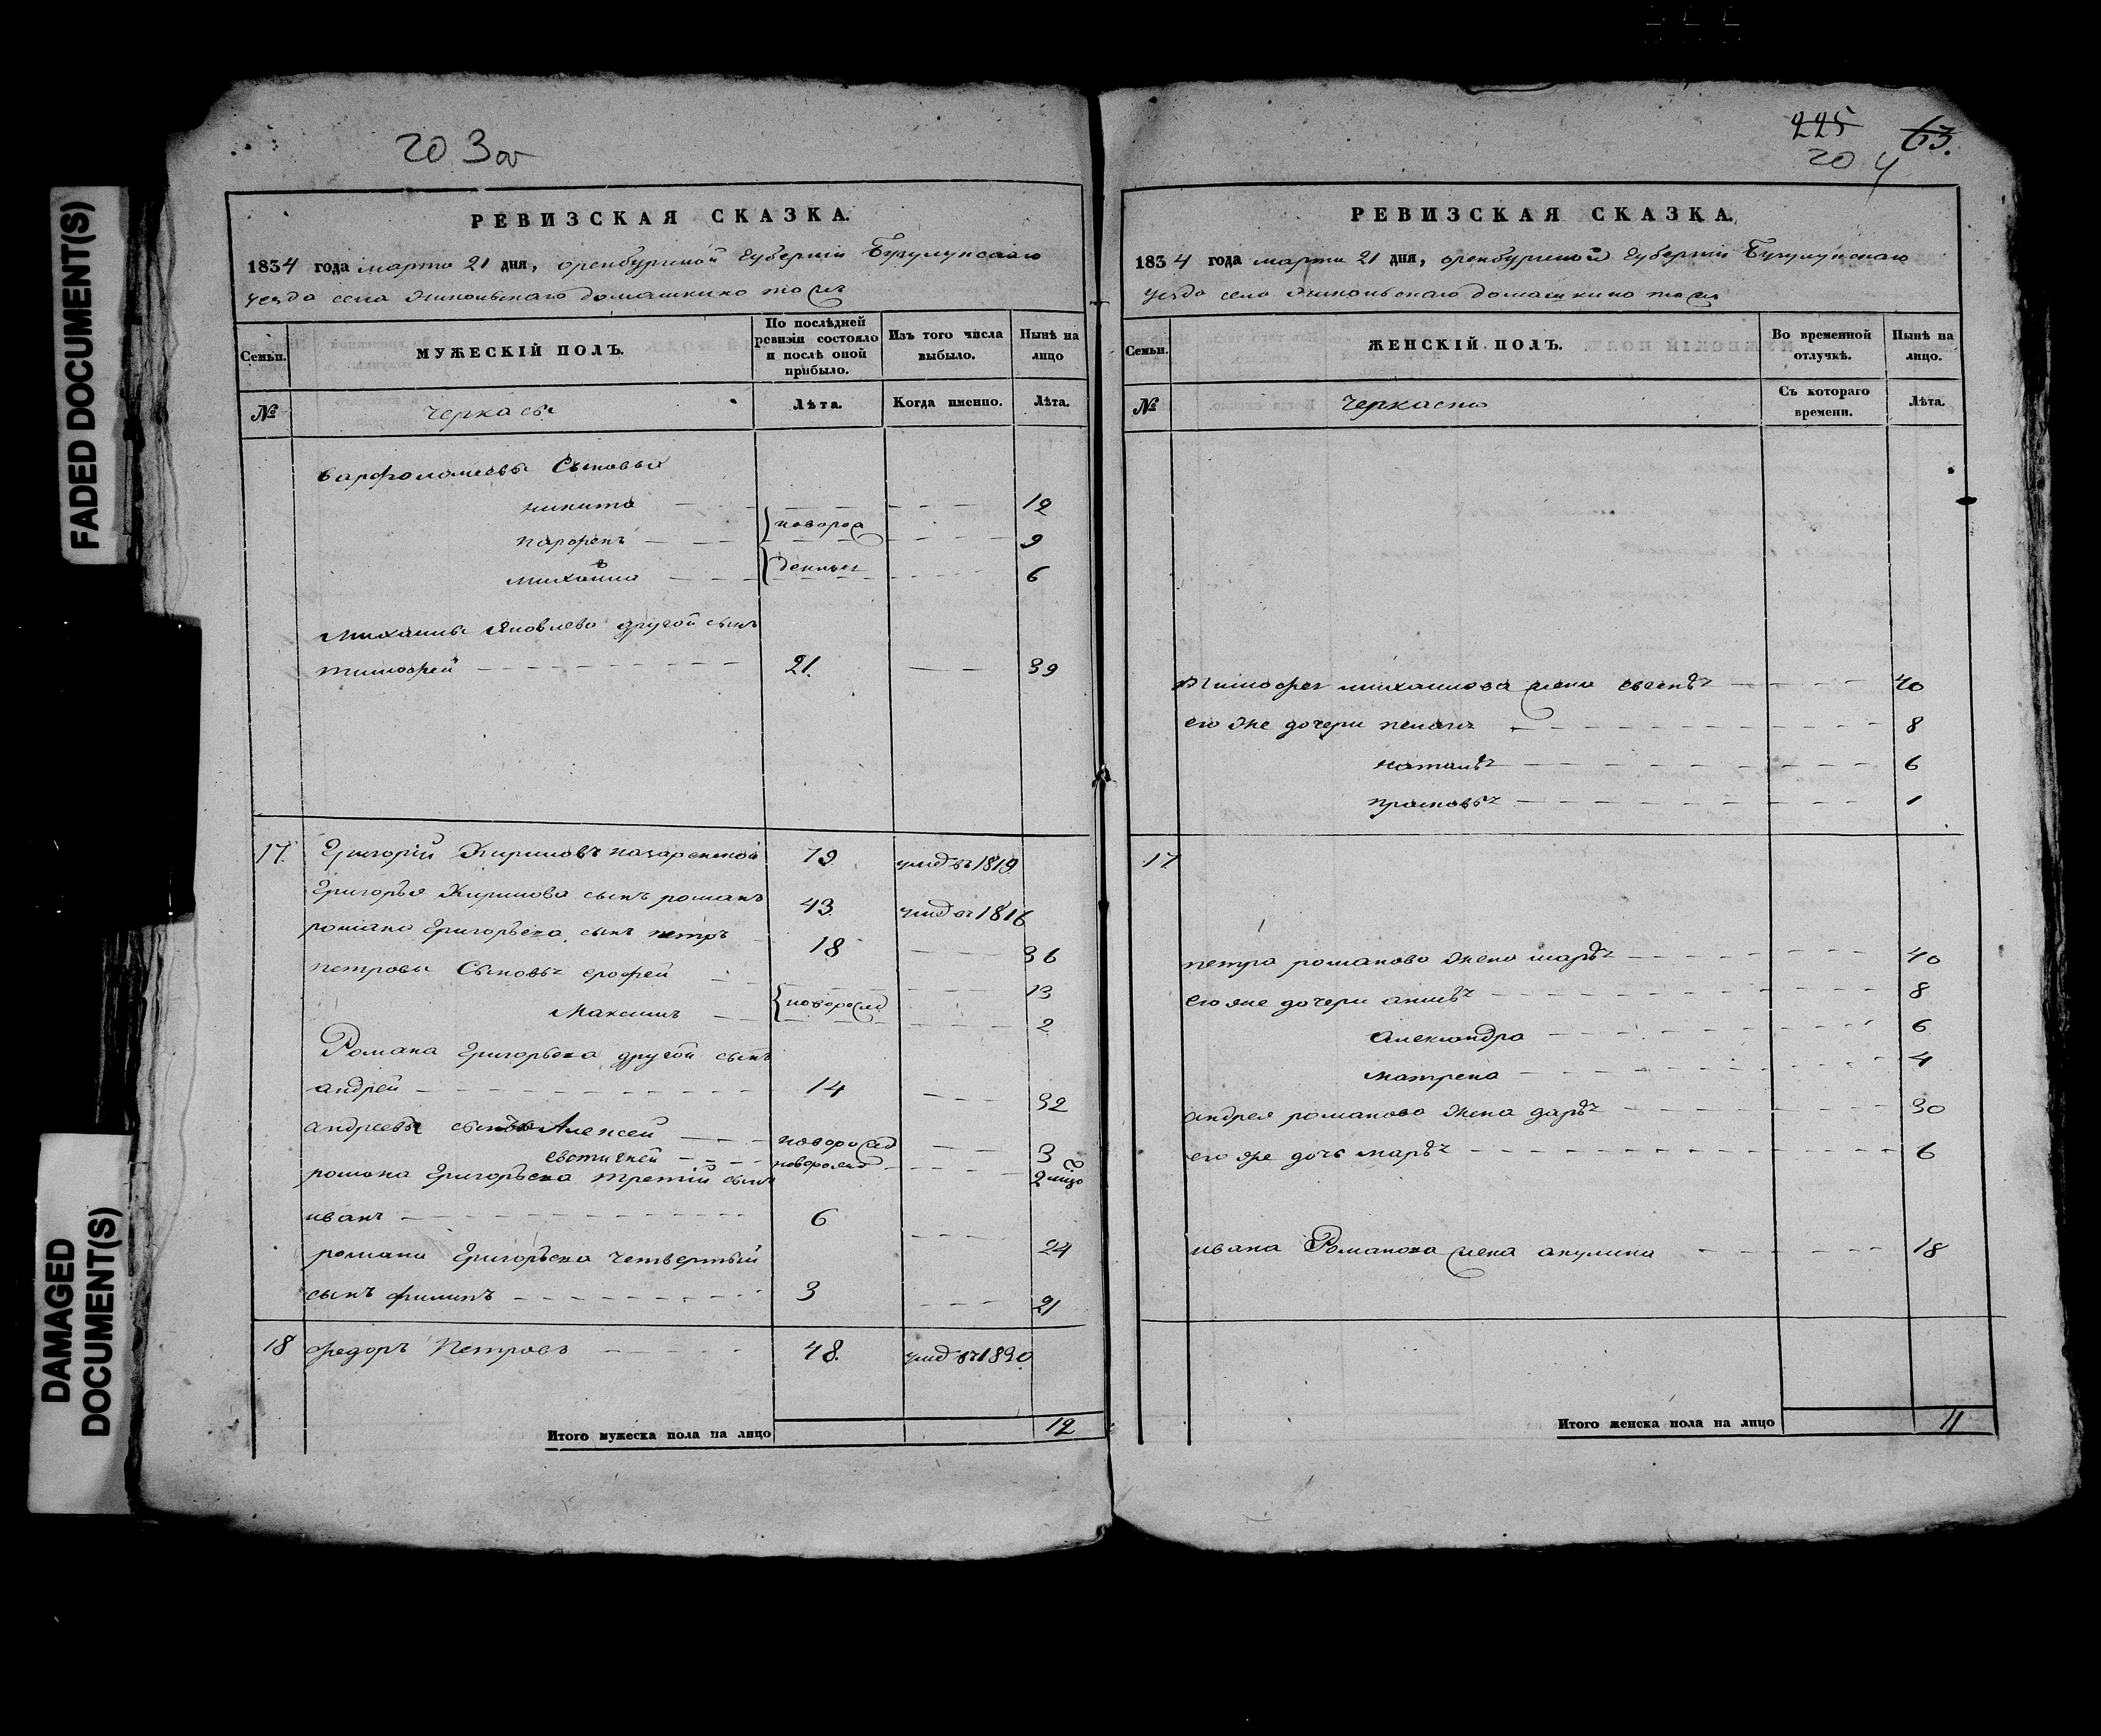 FADED DOCUMENT(S)
DAMAGED
DOCUMENT(S)
203об
РЕВИЗСКАЯ СКАЗКА.
1834 года марта 21 дня, оренбургской Губерніи Бугульминскаго
уезда села Никольскаго домашкино тожъ
Семьи.
МУЖЕСКІЙ ПОЛЪ.
По послѣдней ревизіи состояло и послѣ оной прибыло.
Изъ того числа выбыло.
Нынѣ на лицо
№
Черкасы
Лѣта.
Когда именно.
Лѣта.
варфоломеевы Сыновья
никита 12
новорож
парфенъ 9
михаила 6
денные
михаила Яковлева другой сынъ
тимофей 21. 39
17. Григорій Кириловъ назаренской 79 умер въ 1819.
Григорья Кирилова сынъ романъ 43. умер въ 1816
романа Григорьева сынъ петръ 18 36
петровы Сыновья ерофей 13
новорожд
Максимъ 2
Романа Григорьева другой сынъ
андрей 14 32
андреевы сыновья Алексей новорожд 3
евстигней новорожд 2
романа Григорьева третій сынъ
иванъ 6 24
романа Григорьева четвертый
сынъ филипъ 3 21
18 федоръ Петровъ 48. умер въ 1830.
Итого мужеска пола на лицо 12
225 63.
204
РЕВИЗСКАЯ СКАЗКА.
1834 года марта 21 дня, оренбургской Губерніи Бугульминскаго
уезда села Никольскаго домашкино тожъ
Семьи.
ЖЕНСКІЙ ПОЛЪ.
Во временной отлучкѣ.
Нынѣ на лицо.
№
Черкасы
Съ котораго времени.
Лѣта.
Тимофея михаилова жена 40
его же дочери 8
наталья 6
прасковья 1
17
петра романова жена марья 40
его же дочери 8
Александра 6
матрена 4
андрея романова жена дарья 30
его же дочь марья 6
ивана Романова жена акулина 18
Итого женска пола на лицо 11